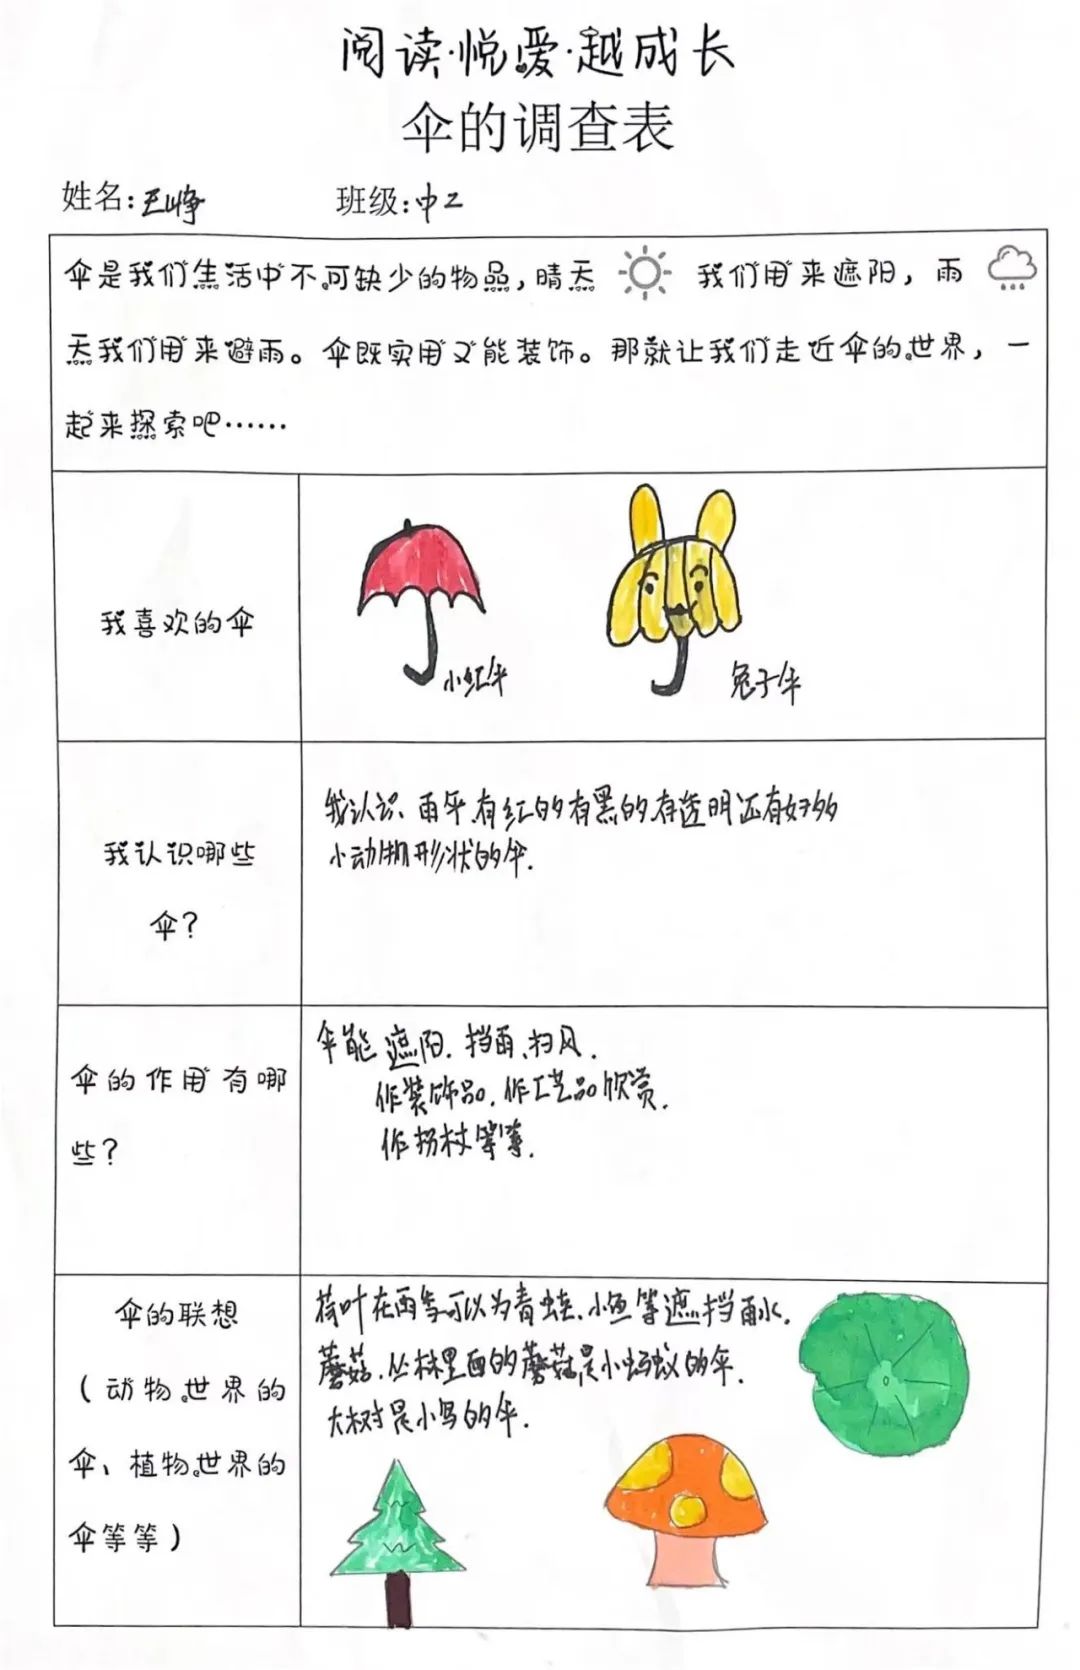 阅读·悦爱·越成长
伞的调查表
姓名:王峥 班级:中二
伞是我们生活中不可缺少的物品,晴天 我们用来遮阳,雨
天我们用来避雨。伞既实用又能装饰。那就让我们走近伞的世界,一
起来探索吧……
我喜欢的伞
小红伞
兔子伞
我认识哪些
伞?
我认识雨伞.有红的有黑的.有透明还有好多
小动物形状的伞.
伞的作用有哪
些?
伞能遮阳.挡雨、扫风.
作装饰品.作工艺品欣赏.
作拐杖等等.
伞的联想
(动物世界的
伞、植物世界的
伞等等)
荷叶在雨等可以为青蛙.小鱼等遮挡雨水.
蘑菇.丛林里面的蘑菇是小蚂蚁的伞.
大树是小鸟的伞.